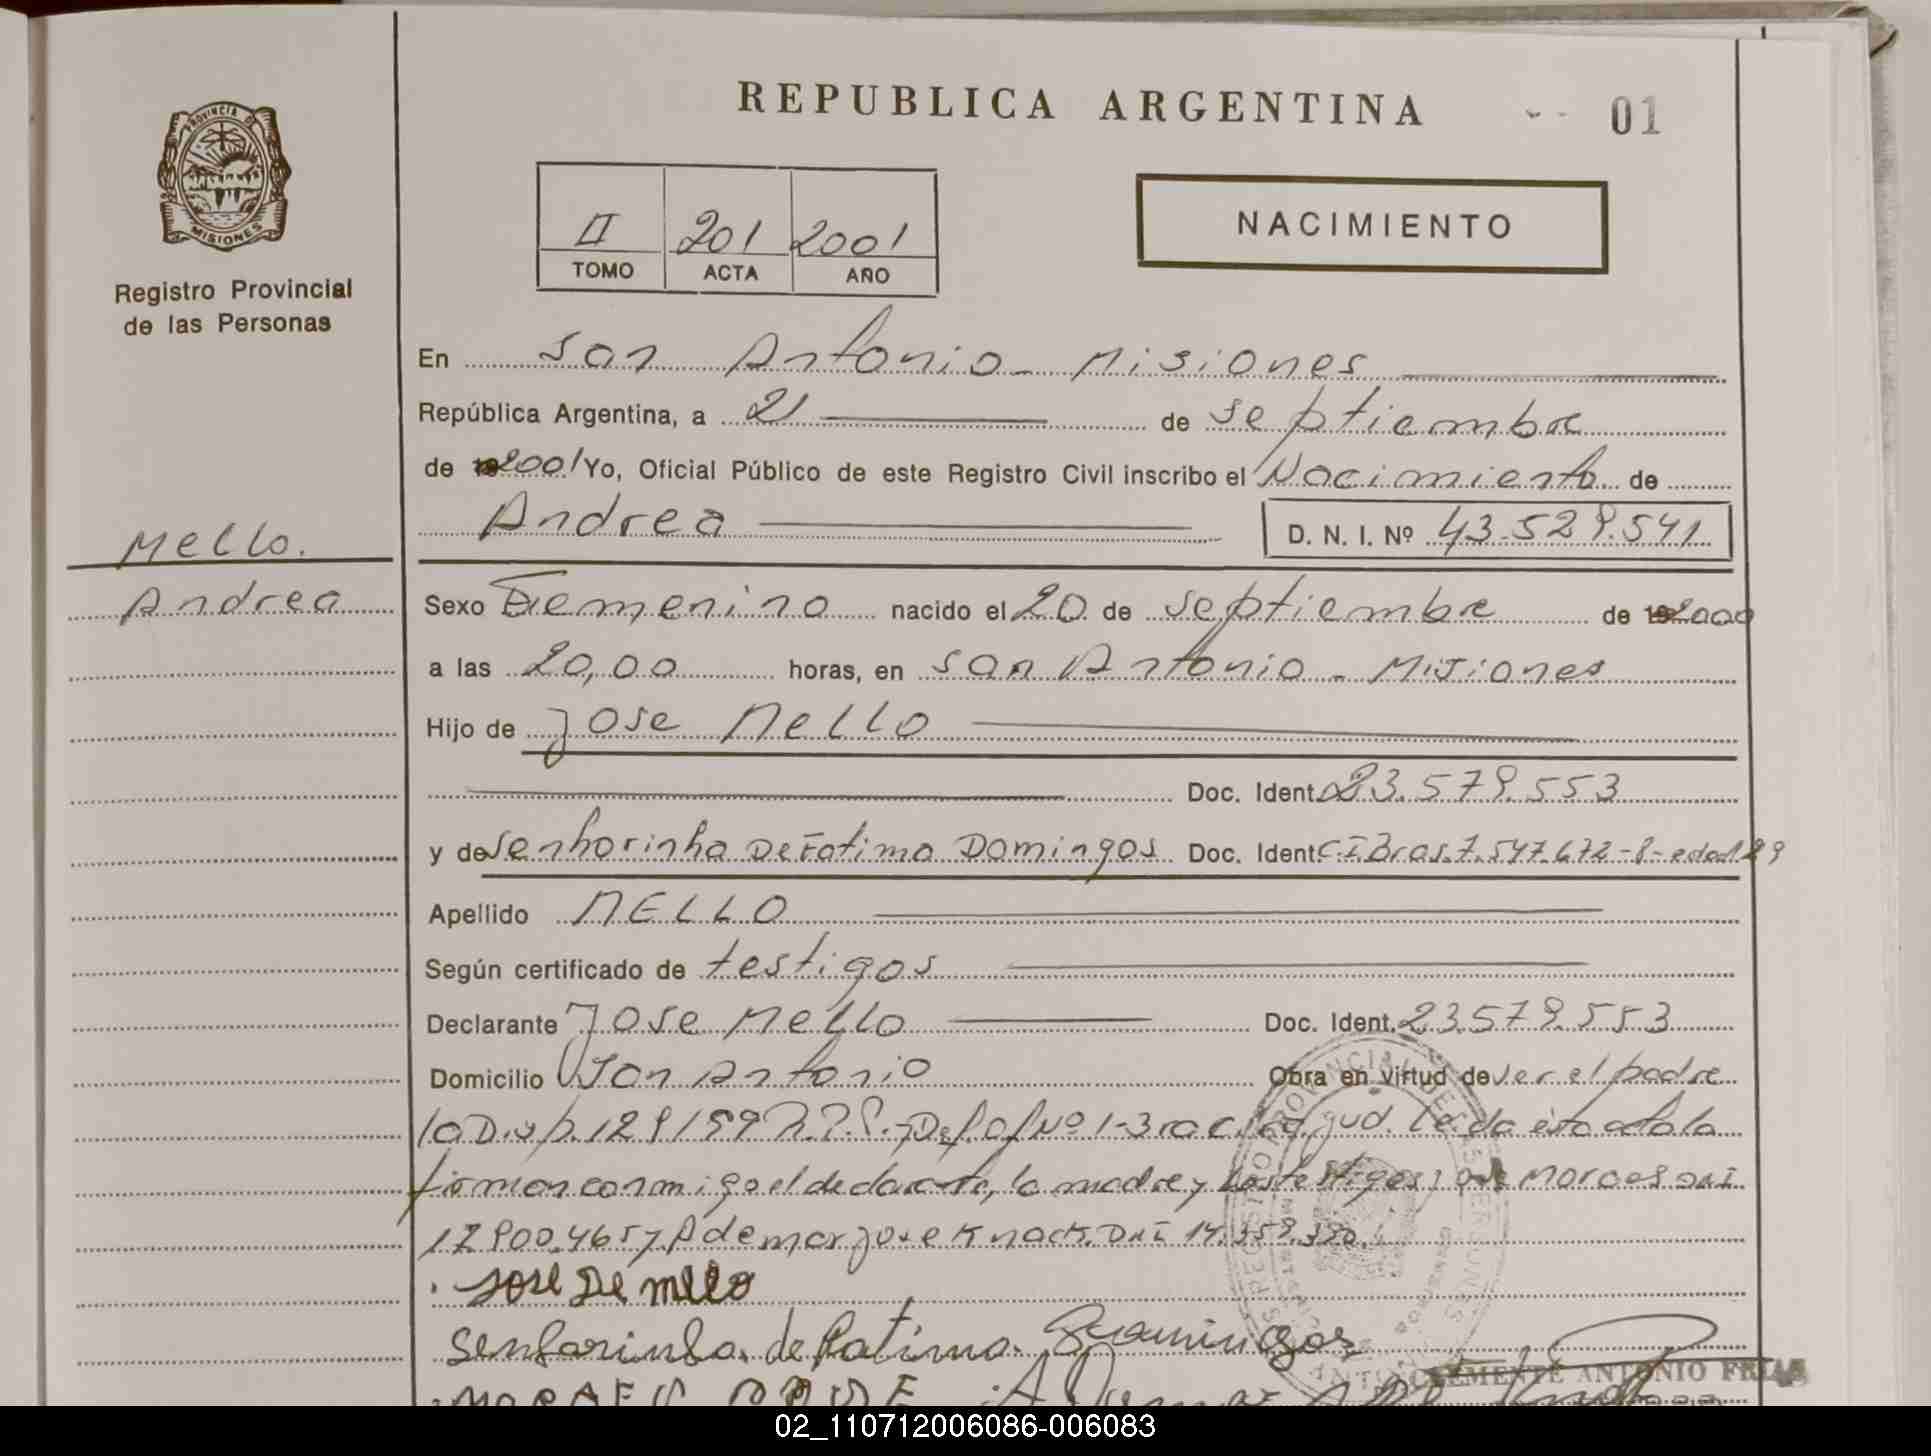 REPUBLICA ARGENTINA 01
PROVINCIA DE
MISIONES
Registro Provincial
de las Personas
II 201 2001
TOMO ACTA AÑO
NACIMIENTO
En San Antonio - Misiones
República Argentina, a 21 de septiembre
de 2001 Yo, Oficial Público de este Registro Civil inscribo el Nacimiento de
Andrea D. N. I. Nº 43.529.541
Mello.
Andrea
Sexo Femenino nacido el 20 de septiembre de 2000
a las 20,00 horas, en San Antonio - Misiones
Hijo de Jose Mello
Doc. Ident. 23.579.553
y de Senhorinha De Fatima Domingos Doc. Ident C.I Bras. 7.547.672-8-edad 29
Apellido MELLO
Según certificado de testigos
Declarante Jose Mello Doc. Ident. 23.579.553
Domicilio San Antonio Obra en virtud de ser el padre
la Disp. 129/59 R.P.P. Nº 1-3ra C. Jud. Leida esta acta la
firman conmigo el declarante, la madre y los testigos Jose Moraes DNI
17.900.465 y Ademar Jose Knack DNI 14.359.
Jose De Mello
Senhorinha de Fatima Domingos
MORAES JOSE
CLEMENTE ANTONIO FRIAS
02_110712006086-006083